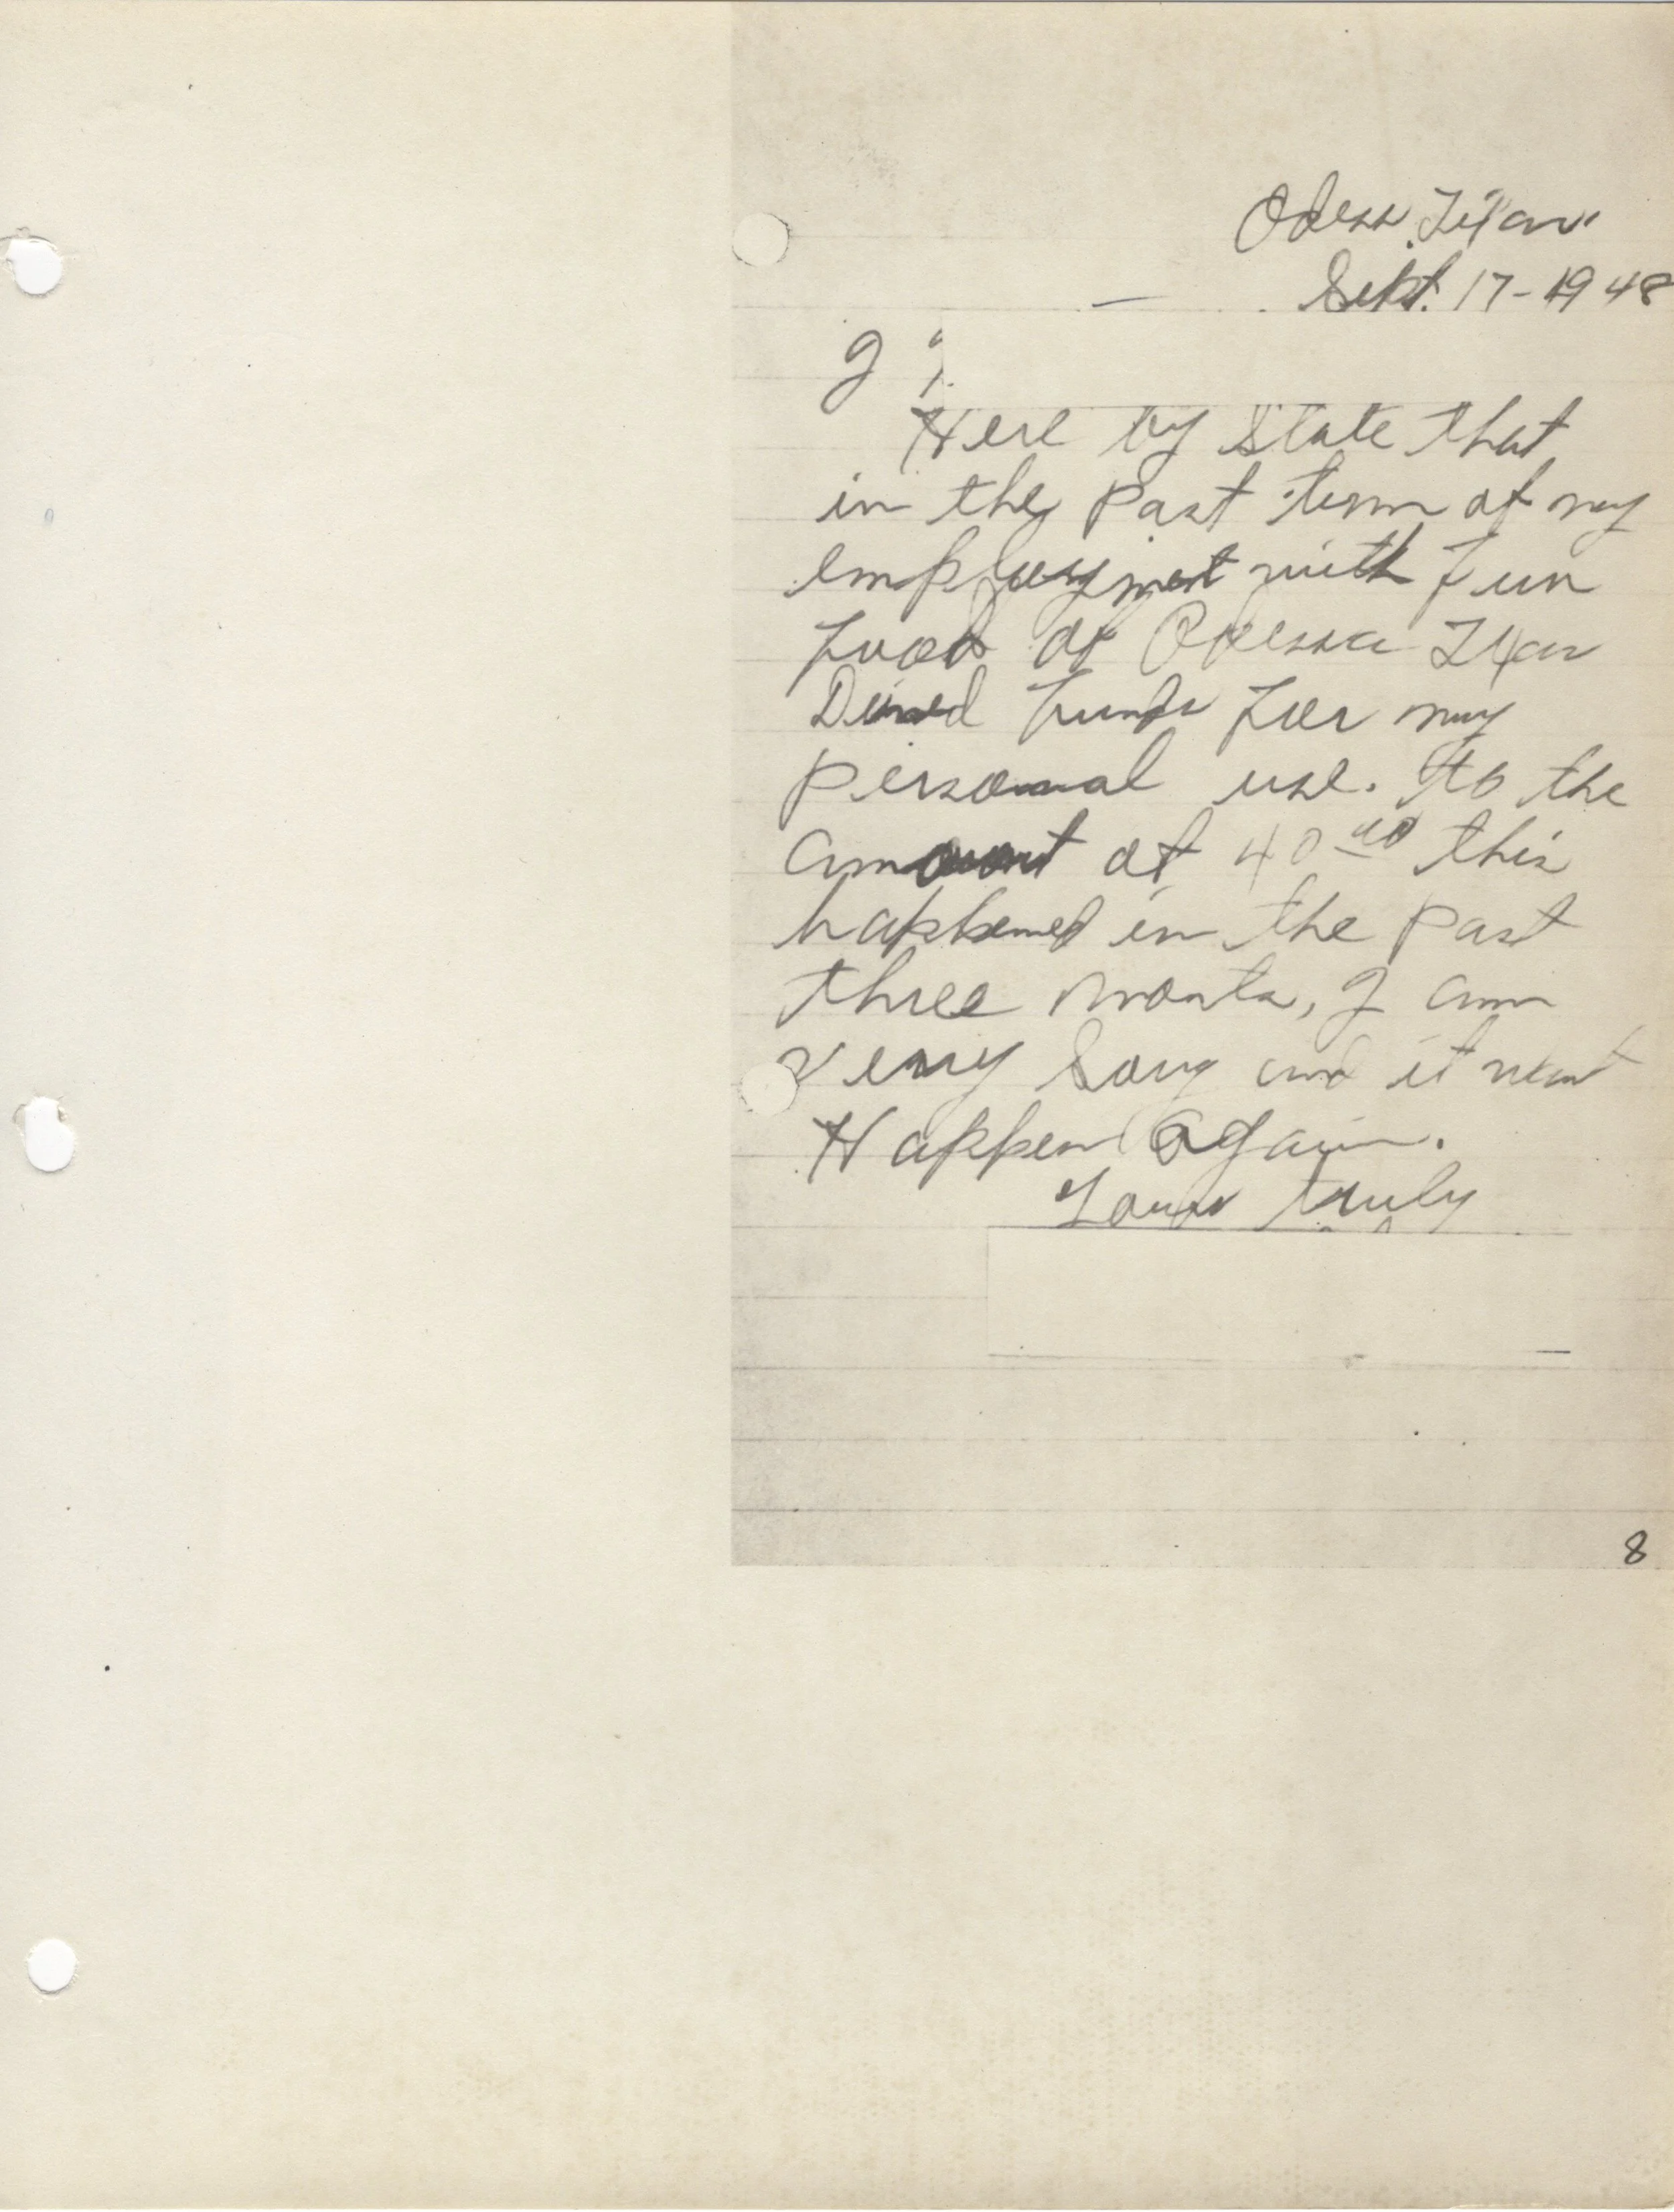 Odessa, Texas
Sept. 17-1948
I
Here by State that
in the past term of my
employment with Fun
Food of Odessa Texas
used funds for my
personal use. to the
amount of 40 00 this
happened in the past
three months, I am
very Sorry and it wont
Happen again.
Yours truly
8